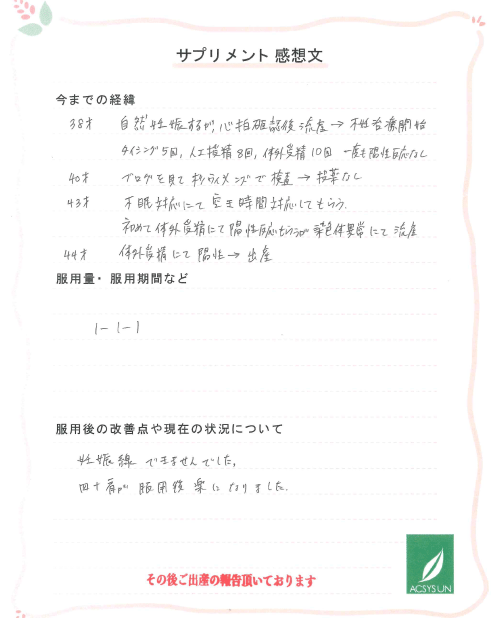 サプリメント 感想文
今までの経緯
38才 自然妊娠するが、心拍確認後流産→不妊治療開始
タイミング5回、人工授精8回、体外受精10回 一度も陽性反応なし
40才 ブログを見て 検査→投薬なし
43才 不眠対応にて 時間対応してもらう.
初めて体外受精にて陽性反応もらうが染色体異常にて流産
44才 体外受精にて陽性→出産
服用量・服用期間など
1-1-1
服用後の改善点や現在の状況について
妊娠線できませんでした。
四十肩が服用後楽になりました.
その後ご出産の報告頂いております
ACSYSUN